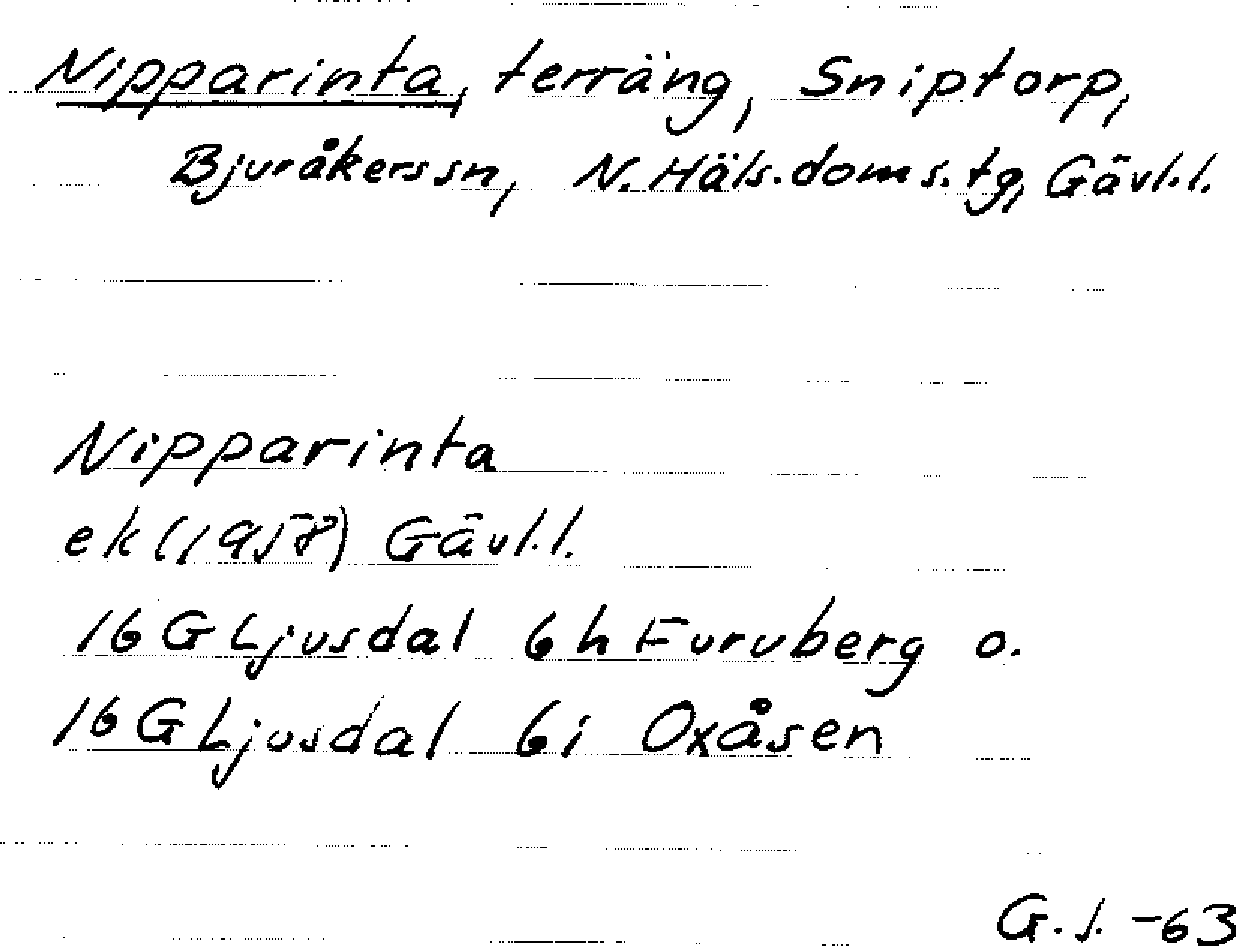 Nipparinta, terräng, Sniptorp,
Bjuråkers sn, N. Häls. doms. tg, Gävl. l.
Nipparinta
ek (1958) Gävl. l.
16 G Ljusdal 6 h Furuberg o.
16 G Ljusdal 6 i Oxåsen
G. J. -63